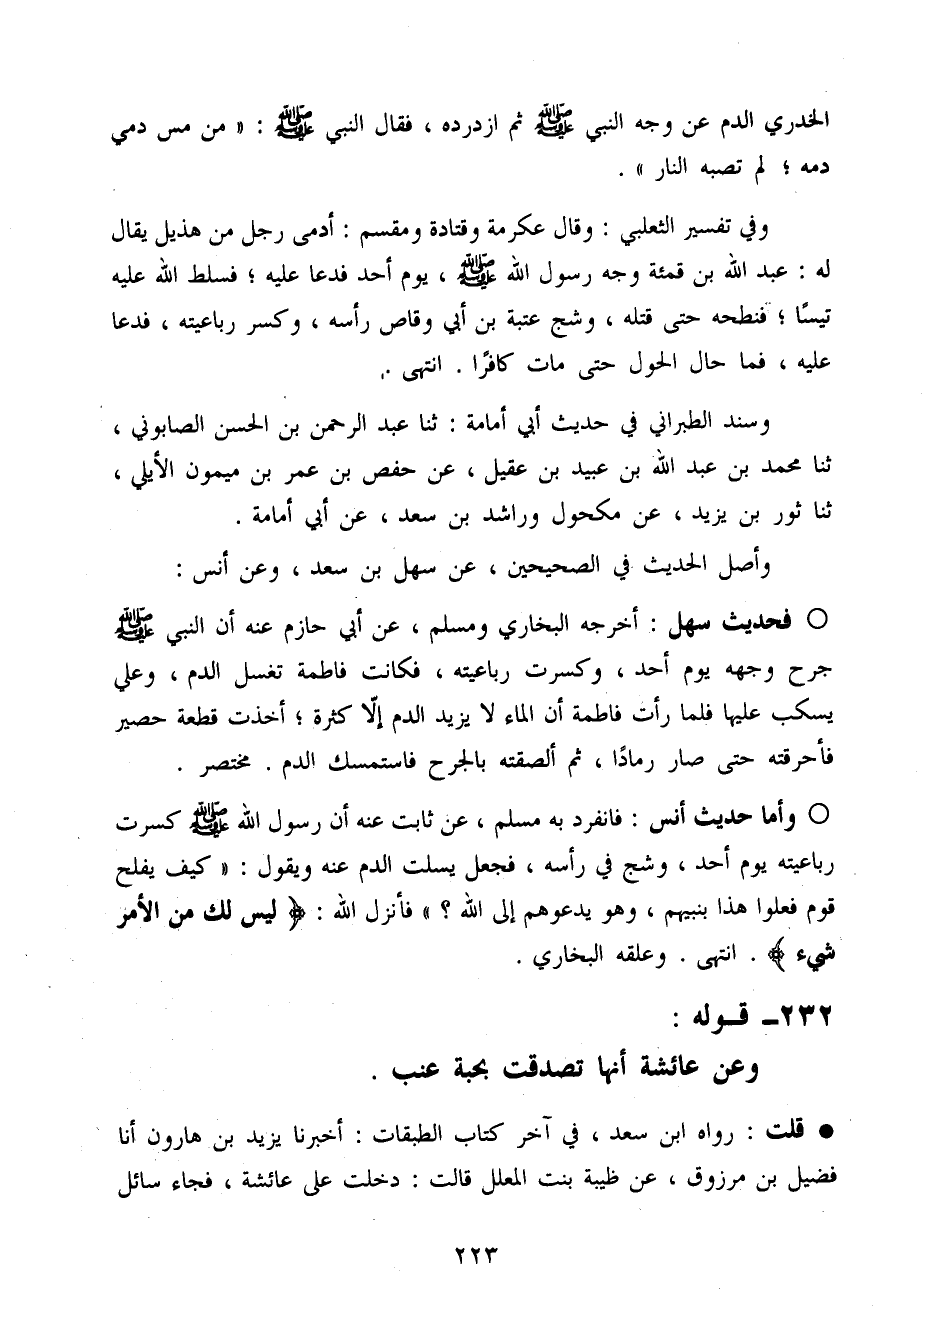 الخدري الدم عن وجه النبي ﷺ ثم ازدرده ، فقال النبي ﷺ : « من مس دمي
دمه ؛ لم تصبه النار » .
وفي تفسير الثعلبي : وقال عكرمة وقتادة ومقسم : أدمى رجل من هذيل يقال
له : عبد الله بن قمئة وجه رسول الله ﷺ ، يوم أحد فدعا عليه ؛ فسلط الله عليه
تيسًا ؛ فنطحه حتى قتله ، وشج عتبة بن أبي وقاص رأسه ، وكسر رباعيته ، فدعا
عليه ، فما حال الحول حتى مات كافرًا . انتهى .
وسند الطبراني في حديث أبي أمامة : ثنا عبد الرحمن بن الحسن الصابوني ،
ثنا محمد بن عبد الله بن عبيد بن عقيل ، عن حفص بن عمر بن ميمون الأيلي ،
ثنا ثور بن يزيد ، عن مكحول وراشد بن سعد ، عن أبي أمامة .
وأصل الحديث في الصحيحين ، عن سهل بن سعد ، وعن أنس :
○ فحديث سهل : أخرجه البخاري ومسلم ، عن أبي حازم عنه أن النبي ﷺ
جرح وجهه يوم أحد ، وكسرت رباعيته ، فكانت فاطمة تغسل الدم ، وعلي
يسكب عليها فلما رأت فاطمة أن الماء لا يزيد الدم إلّا كثرة ؛ أخذت قطعة حصير
فأحرقته حتى صار رمادًا ، ثم ألصقته بالجرح فاستمسك الدم . مختصر .
○ وأما حديث أنس : فانفرد به مسلم ، عن ثابت عنه أن رسول الله ﷺ كسرت
رباعيته يوم أحد ، وشج في رأسه ، فجعل يسلت الدم عنه ويقول : « كيف يفلح
قوم فعلوا هذا بنبيهم ، وهو يدعوهم إلى الله ؟ » فأنزل الله : ﴿ ليس لك من الأمر
شيء ﴾ . انتهى . وعلقه البخاري .
٢٣٢ـ قـوله :
وعن عائشة أنها تصدقت بحبة عنب .
● قلت : رواه ابن سعد ، في آخر كتاب الطبقات : أخبرنا يزيد بن هارون أنا
فضيل بن مرزوق ، عن ظيبة بنت المعلل قالت : دخلت على عائشة ، فجاء سائل
٢٢٣